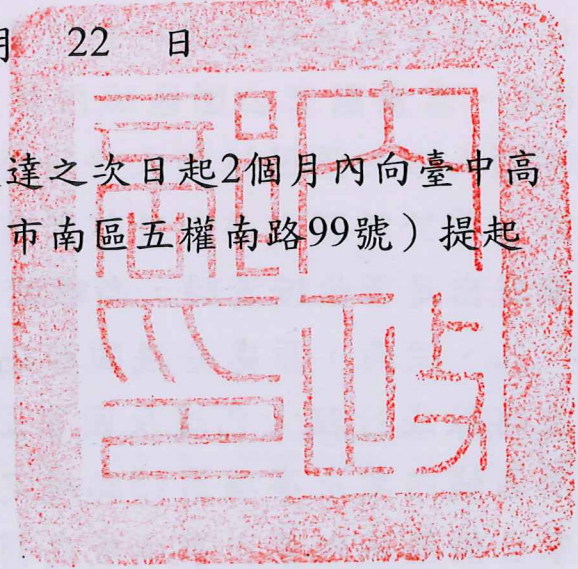 月 22 日
達之次日起2個月內向臺中高
市南區五權南路99號）提起
內政部印